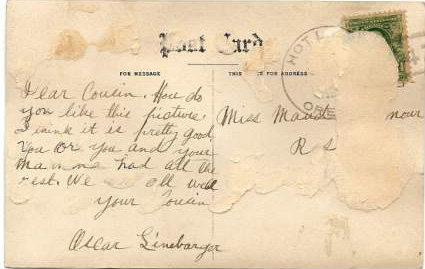 Post Card
FOR MESSAGE
THIS FOR ADDRESS
HOT L
ORE
Dear Cousin. How do
you like this picture.
I think it is pretty good
You or you and your
Mamma had all the
rest. We all well
your Cousin
Oscar Linebarger
Miss Maud nour
R S